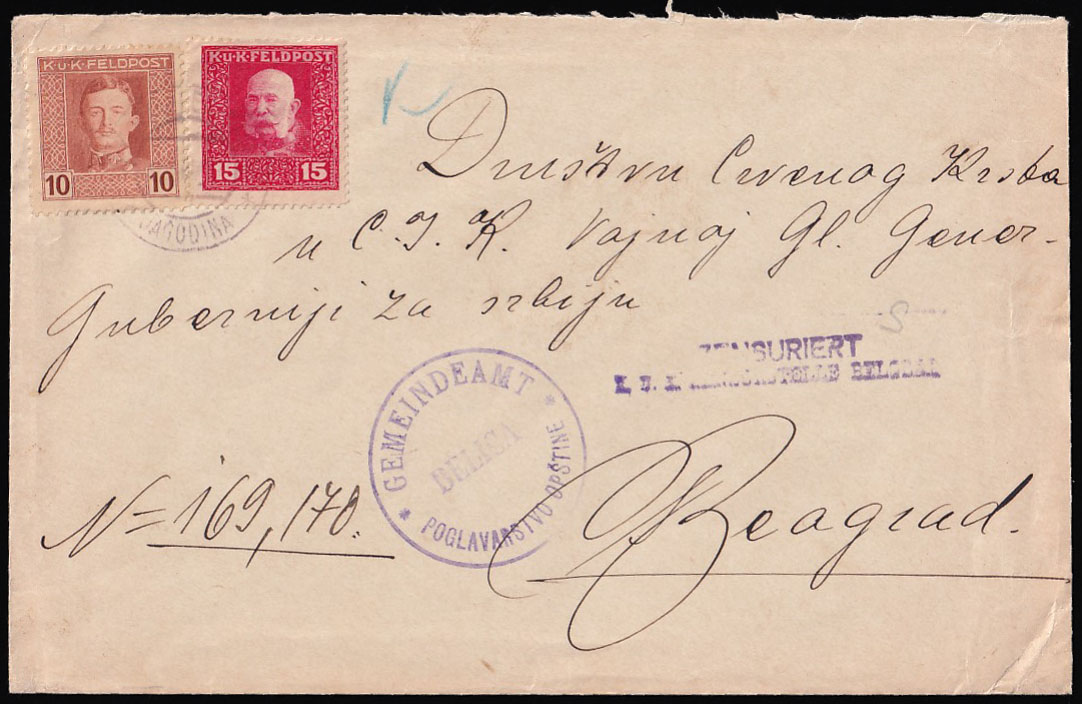 K.u.K.FELDPOST
10 10
K.u.K.FELDPOST
15 15
JAGODINA
Društvu Crvenog Krsta
u C. I. K. Vojnoj Gl. Gener-
Guberniji za srbiju
ZENSURIERT
K. U. K. ZENSURSTELLE BELGRAD
GEMEINDEAMT
BELICA
POGLAVARSTVO OPŠTINE
N= 169, 170.
Beograd.